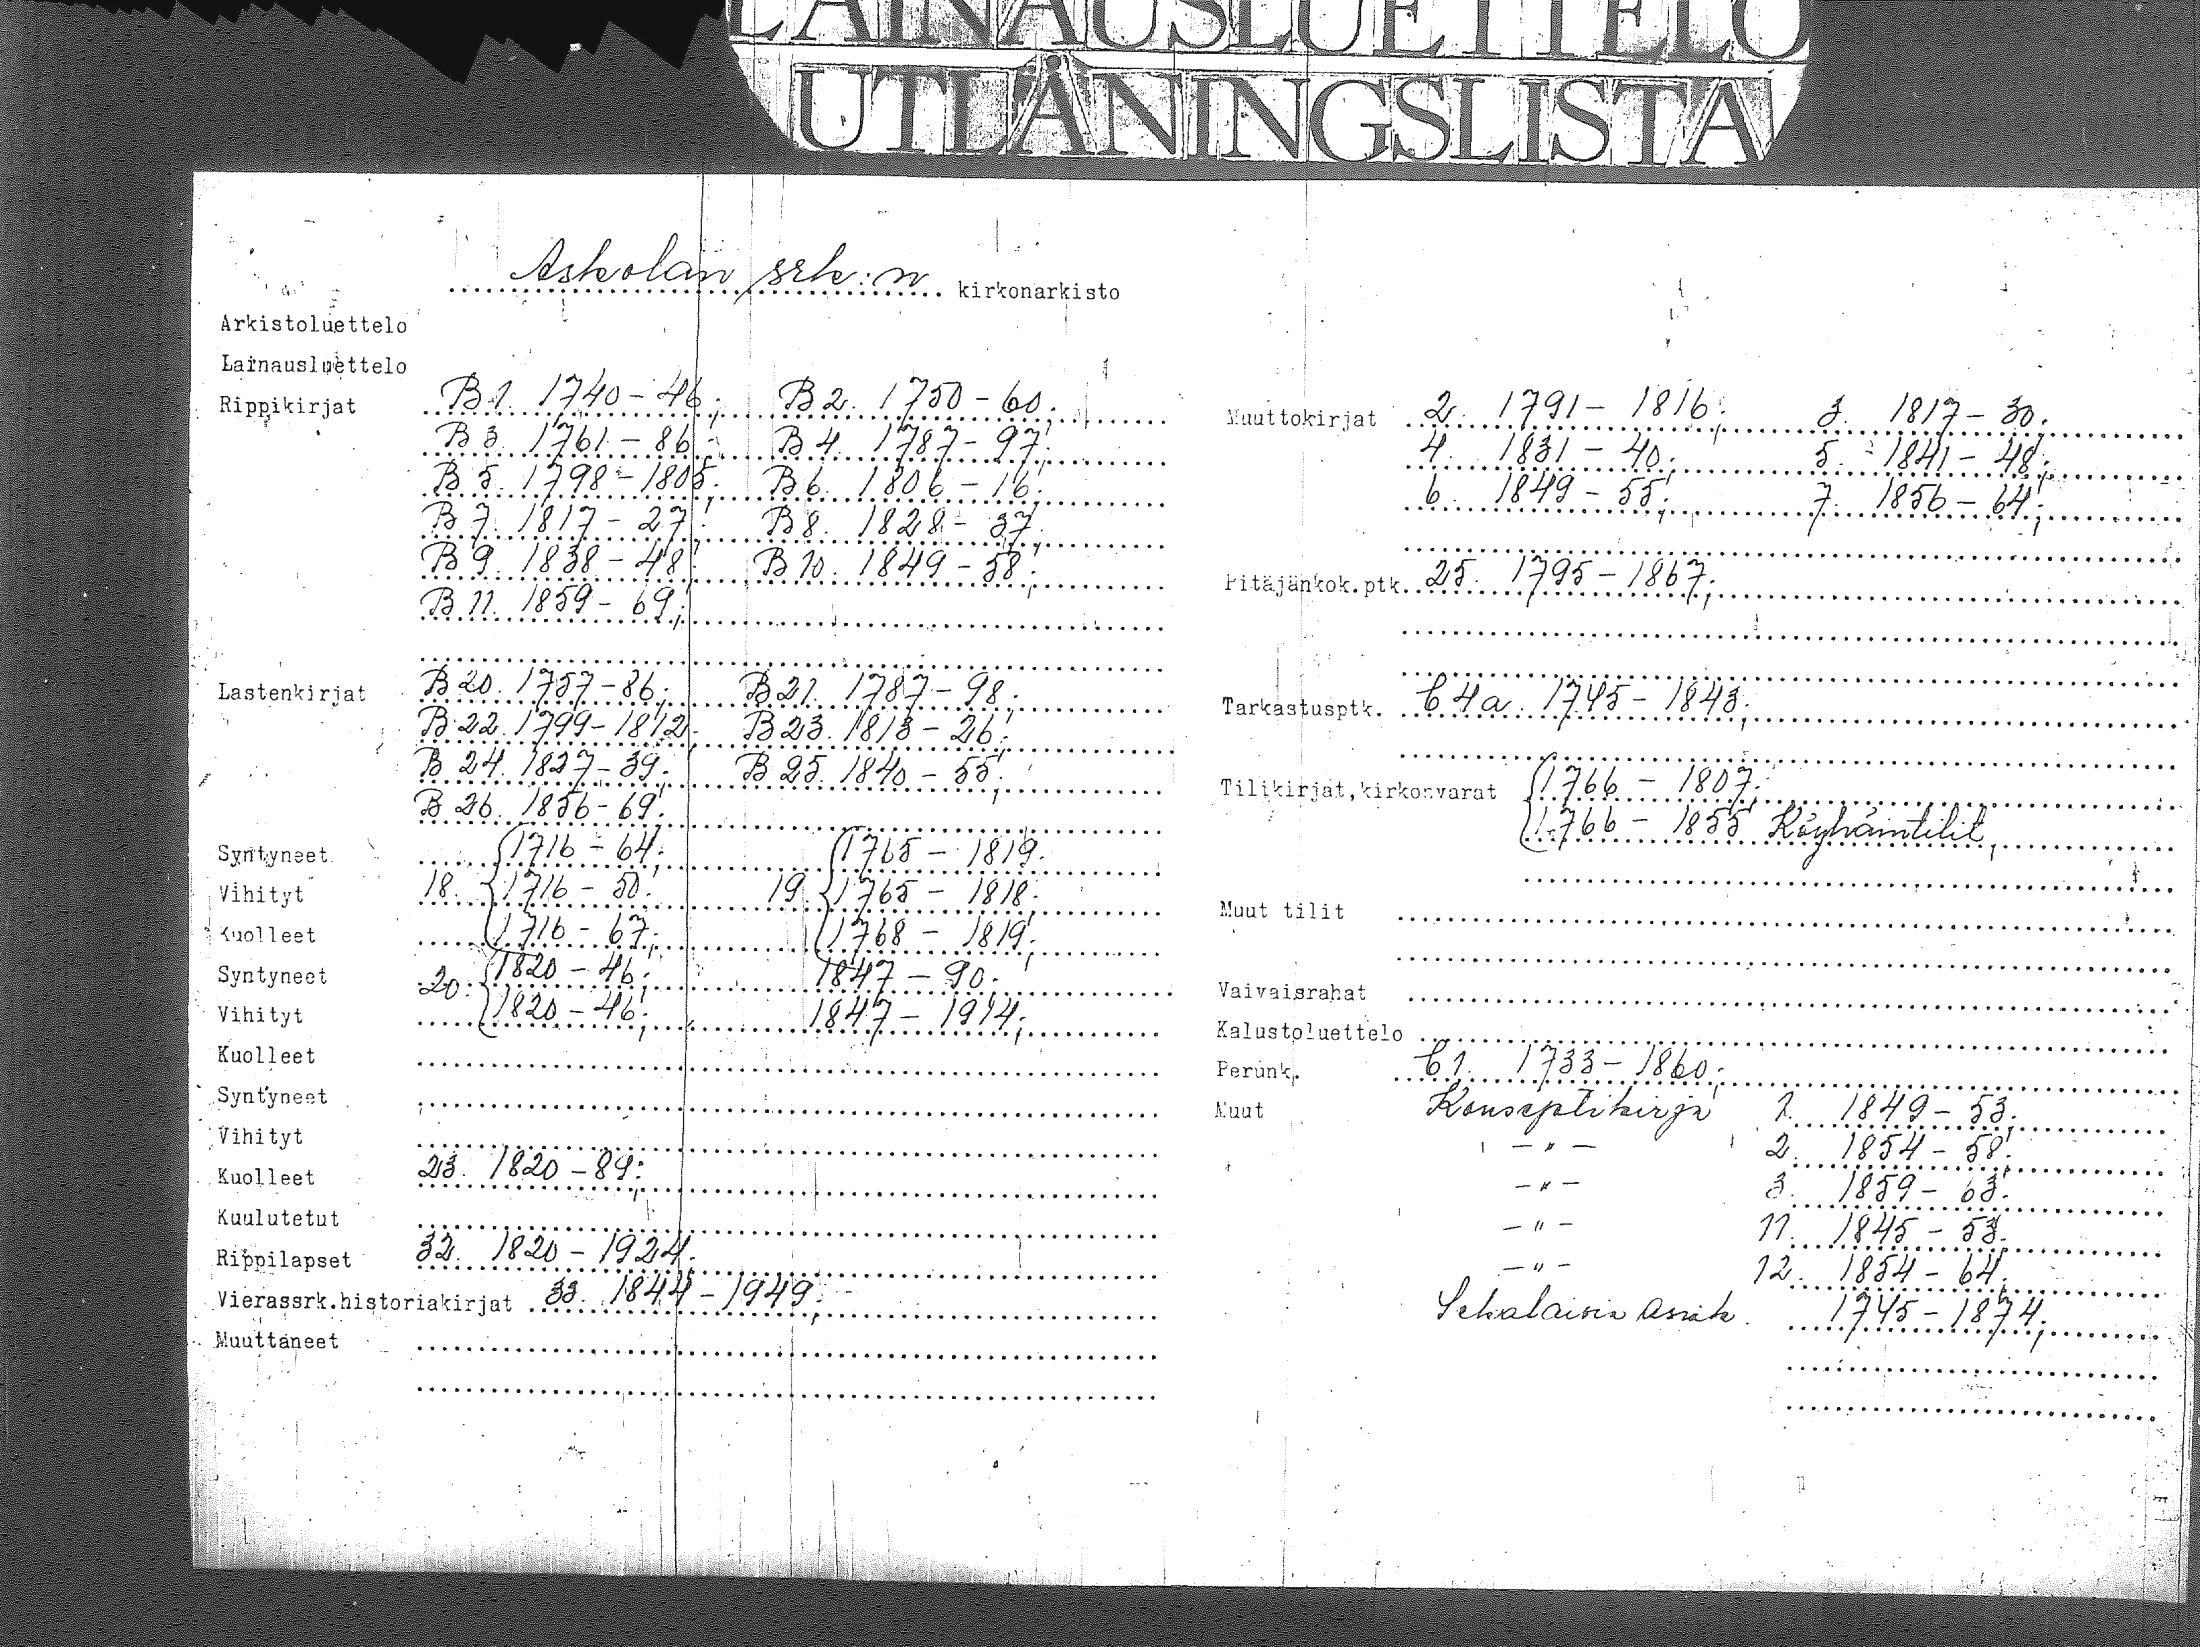 LAINAUSLUETTELO
UTLÅNINGSLISTA
Askolan srk:n kirkonarkisto
Arkistoluettelo
Lainausluettelo
Rippikirjat B 1. 1740-46; B 2. 1750-60;
B 3. 1761-86; B 4. 1787-97;
B 5. 1798-1805; B 6. 1806-16;
B 7. 1817-27; B 8. 1828-37;
B 9. 1838-48; B 10. 1849-58;
B 11. 1859-69;
Lastenkirjat B 20. 1757-86; B 21. 1787-98;
B 22. 1799-1812; B 23. 1813-26;
B 24. 1827-39; B 25. 1840-55;
B 26. 1856-69;
Syntyneet 1716-64; 1765-1819;
Vihityt 18. 1716-50; 19. 1765-1818;
Kuolleet 1716-67; 1768-1819;
Syntyneet 20. 1820-46; 1847-90;
Vihityt 1820-46; 1847-1914;
Kuolleet
Syntyneet
Vihityt
Kuolleet 23. 1820-89;
Kuulutetut
Rippilapset 32. 1820-1924;
Vierassrk.historiakirjat 33. 1844-1949;
Muuttaneet
Muuttokirjat 2. 1791-1816; 3. 1817-30;
4. 1831-40; 5. 1841-48;
6. 1849-55; 7. 1856-64;
Pitäjänkok.ptk. 25. 1795-1867;
Tarkastusptk. C 4a. 1745-1843;
Tilikirjat,kirkonvarat 1766-1807;
1766-1855 Köyhäintilit,
Muut tilit
Vaivaisrahat
Kalustoluettelo
Perunk. C 1. 1733-1860;
Muut Konseptikirja 1. 1849-53;
-"- 2. 1854-58;
-"- 3. 1859-63;
-"- 11. 1845-53;
-"- 12. 1854-64;
Sekalaisia asiak. 1745-1874;